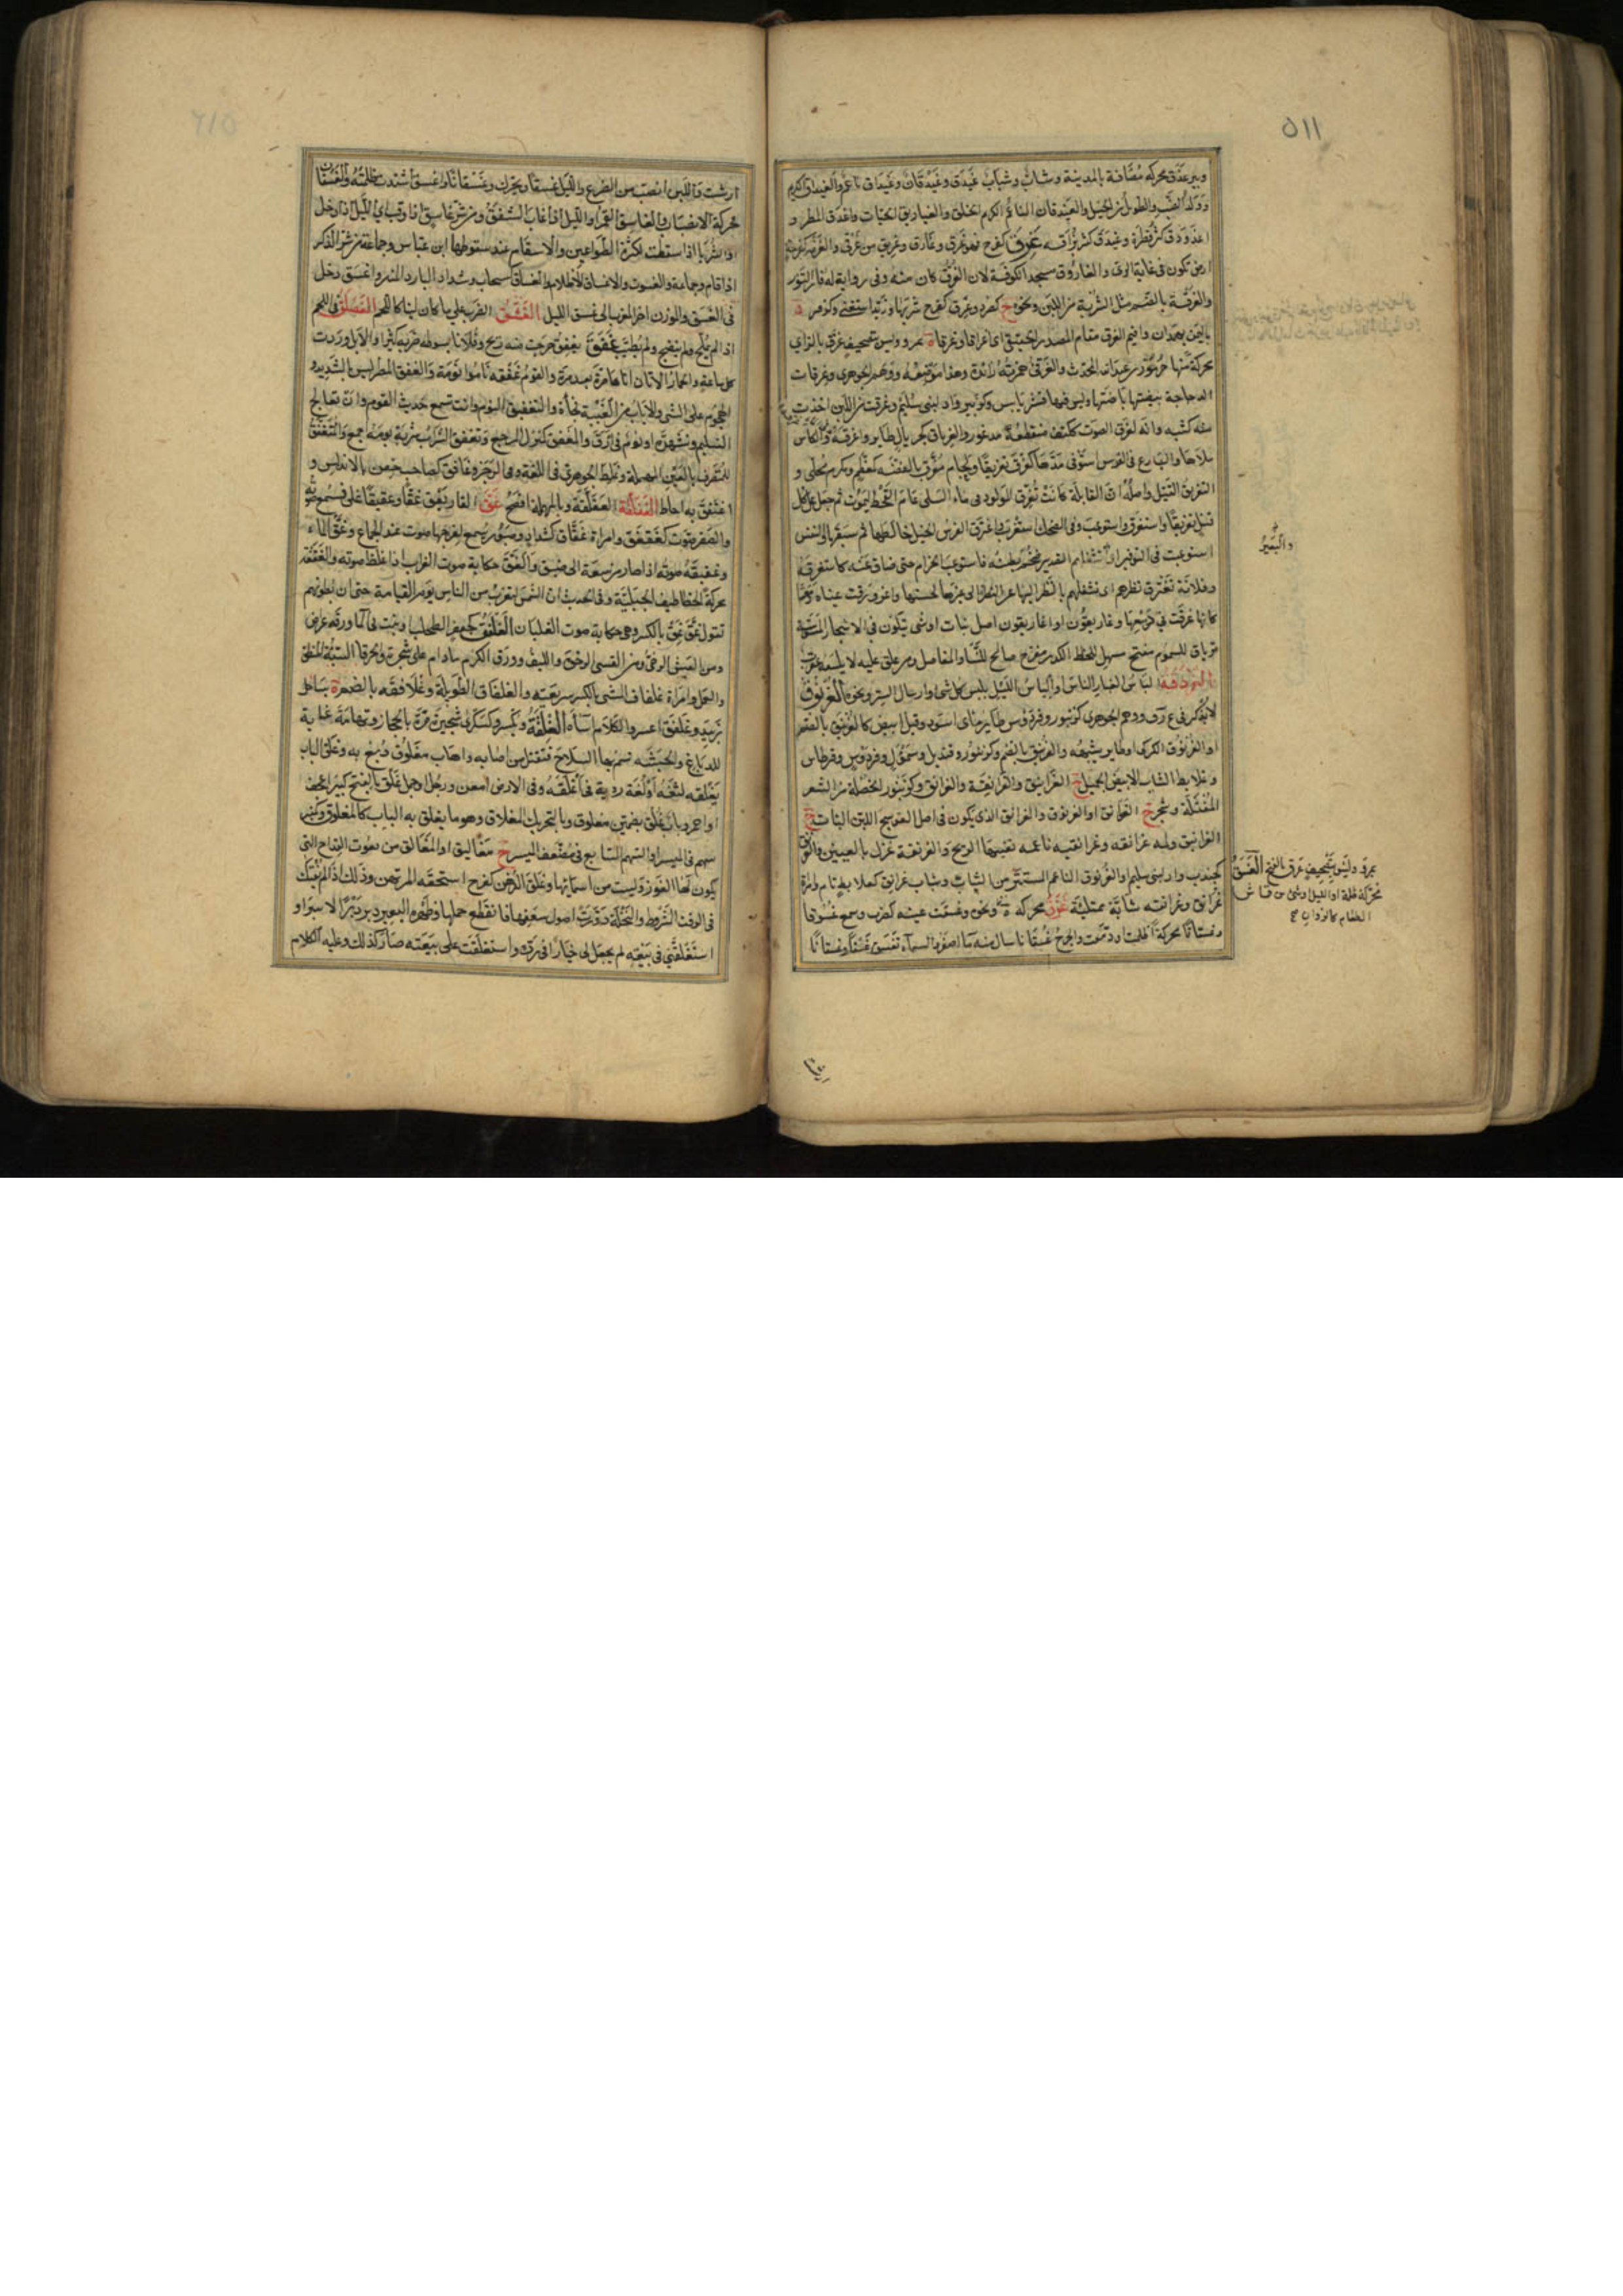 ٥١١
وبير غدق محركة مضافة بالمدينة وشاب وشباب غيدق وغيدقان وغيداق ناعم والغيداق الكريم
وولد الضب والطويل من الخيل والغيدقان الناعم الكريم الخلق والغياديق الحيات واغدق المطر و
اغدودق كثر قطره وغيدق كثر بزاقه غرق كفرح فهو غرق وغارق وغريق من غرقى والغرقة كفرحة
ارض تكون في غاية الري والغاروق مسجد الكوفة لان الغرق كان منه وفي رواية له فار التنور
والغرقة بالضم مثل الشربة من اللبن ونحوه ج كصرد وغرق كفرح شربها وزيد استغنى وكزفر ة
باليمن بهمدان واقيم الغرق مقام المصدر الحقيقي اي اغراقا وغرقاة بمرو وليس تصحيف غزق بالزاي
محركة منها جرموز بن عبد الله المحدث والغرقئ همزته زائدة وهذا موضعه ووهم الجوهري وغرقات
الدجاجة بيضتها باضتها وليس فيها قشر يابس وكزبير واد لبني سليم وغرقت من اللبن اخذت
منه كثبه وانه لغرق الصوت ككتف منقطعه مذعور والغرياق كجريال طاير واغرقه والكاس
ملاها والنازع في القوس استوفى مدها كغرق تغريقا ولجام مغرق بالفضة كمعظم ومكرم محلى و
التغريق القتل واصله ان القابلة كانت تغرق المولود في ماء السلى عام القحط ليموت ثم جعل كل
قتل تغريقا واستغرق استوعب وفي الضحك استغرب واغترق الفرس الخيل خالطها ثم سبقها والنفس
استوعبت في الزفير
وفلانة تغترق نظرهم اي تشغلهم بالنظر اليها عن النظر الى غيرها لحسنها واغرورقت عيناه دمعتا
كانها غرقت في دمعها وغاريقون او اغاريقون اصل نبات او شئ يتكون في الاشجار المسوسة
ترياق للسموم مفتح مسهل للخلط الكدر مفرح صالح للنسا والمفاصل ومن علق عليه لا يلسعه عقرب
الغردقة الباس الغبار الناس او الباس الليل يلبس كل شئ وارسال الستر ونحوه الغرنوق
لا يذكر في غ ر ق ووهم الجوهري كزنبور وفردوس طاير مائي اسود وقيل ابيض كالغرنيق بالضم
او الغرنوق الكركي او طاير يشبهه والغرنيق بالضم وكزنبور وقنديل وسموأل وفردوس وقرطاس
وعلابط الشاب الابيض الجميل ج الغرانيق والغرانقة والغرانق وكزنبور الخصلة من الشعر
المفتلة وشجر ج الغرانق او الغرنوق والغرانق الذي يكون في اصل العوسج اللين النبات ج
الغرانيق ولمة غرانقة وغرانقية ناعمة تفيئها الريح والغرنقة غزل بالعينين والغرنق
كجندب واد لبني سليم والغرنوق الناعم المستتر من النبات وشاب غرانق كعلابط تام وامرأة
غرانق وغرانقة شابة ممتلئة غزق محركة ة بمرو وغسقت عينه كضرب وسمع غسوقا
وغسقانا محركة اظلمت او دمعت والجرح غسقانا سال منه ماء اصفر والسماء تغسق غسقا وغسقانا
والبعير
بمرو وليس بتصحيف غرق بالفتح الغسق
محركة ظلمة اول الليل وشئ من قماش
الطعام كالزوان صح
ارشت واللبن انصب من الضرع والليل غسقا ويحرك وغسقانا واغسق اشتدت ظلمته والغسقان
محركة الانصباب والغاسق القمر او الليل اذا غاب الشفق ومن شر غاسق اذا وقب اي الليل اذا دخل
او الثريا اذا سقطت لكثرة الطواعين والاسقام عند سقوطها ابن عباس وجماعة من شر الذكر
اذا قام وجماعة والغسوق والاغساق الاظلام والغساق كسحاب وشداد البارد المنتن واغسق دخل
في الغسق والمؤذن اخر المغرب الى غسق الليل الغشق الضرب على ما كان لينا كاللحم الغصلق في اللحم
اذا لم يملح ولم ينضج ولم يطيب غفق يغفق خرجت منه ريح وفلانا بسوطه ضربه كثيرا والابل وردت
كل ساعة والحمار الاتان اتاها مرة بعد مرة والقوم غفقة ناموا نومة والغفق المطر ليس بالشديد و
الهجوم على الشئ والاياب من الغيبة فجأة والتغفيق النوم وانت تسمع حديث القوم وان تعالج
السليم وتسهده او نوم في ارق والمغفق كمنزل المرجع وتغفق الشراب شربه يومه اجمع والمتغفق
المنصرف بالغين المعجمة وغلط الجوهري في اللغة وفي الرجز وغافق كصاحب حصن بالاندلس و
اغتفق به احاط الغفلقة العفلقة وبالمهملة افصح غق القار يغق غقا وغقيقا غلى فسمع صوته
والصقر صوت كغقغق وامراة غقاق كشداد وصبور يسمع لفرجها صوت عند الجماع وغق الماء
وغقيقه صوته اذا صار من سعة الى ضيق والغق حكاية صوت الغراب اذا غلظ صوته والغققة
محركة الخطاطيف الجبلية وفي الحديث ان الشمس لتقرب من الناس يوم القيامة حتى ان بطونهم
تقول غق غق بالكسر وهي حكاية صوت الغليان الغلفق كجعفر الطحلب او نبت في الماء ورقه عراض
ومن العيش الرخي ومن القسي الرخوة والليف وورق الكرم ما دام على شجره والخرقاء السيئة المنطق
والعمل وامراة غلفاق المشي بالكسر سريعته والغلفاق الطويلة وغلافقة بالضم ة بساحل
زبيد وغلفق اعسر والكلام اساءه الغلقة ويكسر وكسكرى شجيرة مرة بالحجاز وتهامة غاية
للدباغ والحبشة تسم بها السلاح فتقتل من اصابه واهاب مغلوق دبغ به وغلق الباب
يغلقه لثغة او لغة ردية في اغلقه وفي الارض امعن ورجل او جمل غلق بالفتح كبير اعجف
او احمر وباب غلق بضمتين مغلوق وبالتحريك المغلاق وهو ما يغلق به الباب كالمغلوق وكمنبر
سهم في الميسر او السهم السابع في مضعف الميسر ج مغاليق او المغالق من نعوت القداح التي
يكون لها الفوز وليست من اسمائها وغلق الرهن كفرح استحقه المرتهن وذلك اذا لم يفتكك
في الوقت المشروط والنخلة دودت اصول سعفها فانقطع حملها وظهر البعير دبر دبرا لا يبرا و
استغلقني في بيعته لم يجعل لي خيارا في رده واستغلقت على بيعته صار كذلك وعليه الكلام